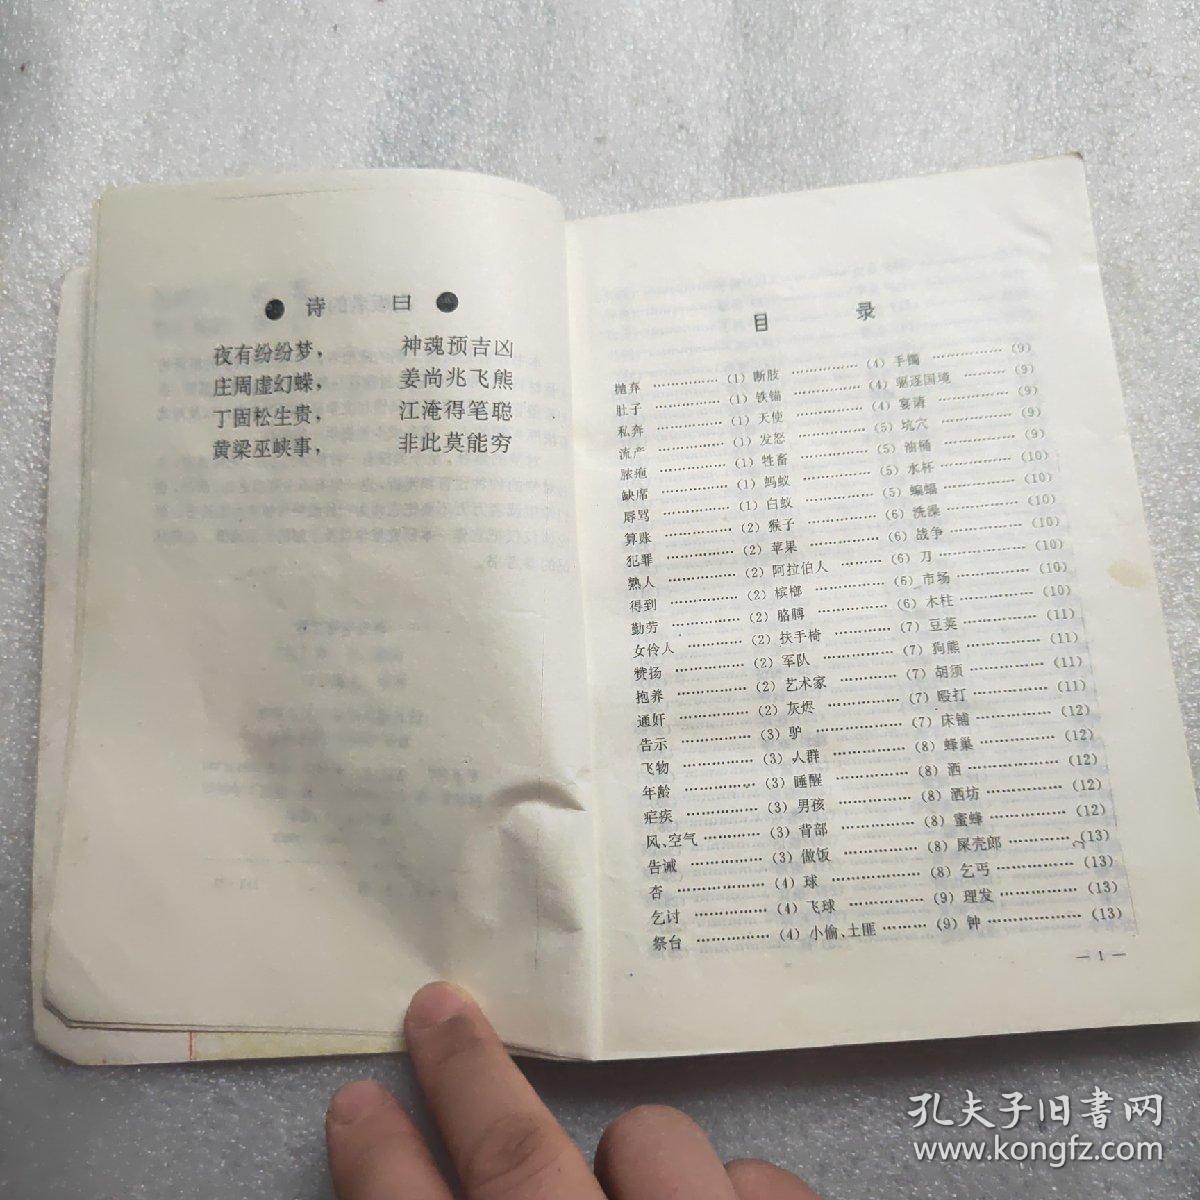 诗 曰
夜有纷纷梦， 神魂预吉凶
庄周虚幻蝶， 姜尚兆飞熊
丁固松生贵， 江淹得笔聪
黄梁巫峡事， 非此莫能穷
目 录
抛弃 ………… (1) 断肢 ………… (4) 手镯 ………… (9)
肚子 ………… (1) 铁锚 ………… (4) 驱逐国境 ………… (9)
私奔 ………… (1) 天使 ………… (4) 宴请 ………… (9)
流产 ………… (1) 发怒 ………… (5) 坑穴 ………… (9)
脓疱 ………… (1) 牲畜 ………… (5) 油桶 ………… (9)
缺席 ………… (1) 蚂蚁 ………… (5) 水杯 ………… (10)
辱骂 ………… (1) 白蚁 ………… (5) 蝙蝠 ………… (10)
算账 ………… (2) 猴子 ………… (6) 洗澡 ………… (10)
犯罪 ………… (2) 苹果 ………… (6) 战争 ………… (10)
熟人 ………… (2) 阿拉伯人 ………… (6) 刀 ………… (10)
得到 ………… (2) 槟榔 ………… (6) 市场 ………… (10)
勤劳 ………… (2) 胳膊 ………… (6) 木柱 ………… (10)
女伶人 ………… (2) 扶手椅 ………… (7) 豆荚 ………… (11)
赞扬 ………… (2) 军队 ………… (7) 狗熊 ………… (11)
抱养 ………… (2) 艺术家 ………… (7) 胡须 ………… (11)
通奸 ………… (2) 灰烬 ………… (7) 殴打 ………… (11)
告示 ………… (3) 驴 ………… (7) 床铺 ………… (12)
飞物 ………… (3) 人群 ………… (8) 蜂巢 ………… (12)
年龄 ………… (3) 睡醒 ………… (8) 酒 ………… (12)
疟疾 ………… (3) 男孩 ………… (8) 酒坊 ………… (12)
风、空气 ………… (3) 背部 ………… (8) 蜜蜂 ………… (12)
告诫 ………… (3) 做饭 ………… (8) 屎壳郎 ………… (13)
杏 ………… (4) 球 ………… (8) 乞丐 ………… (13)
乞讨 ………… (4) 飞球 ………… (9) 理发 ………… (13)
祭台 ………… (4) 小偷、土匪 ……… (9) 钟 ………… (13)
— 1 —
孔夫子旧书网
www.kongfz.com